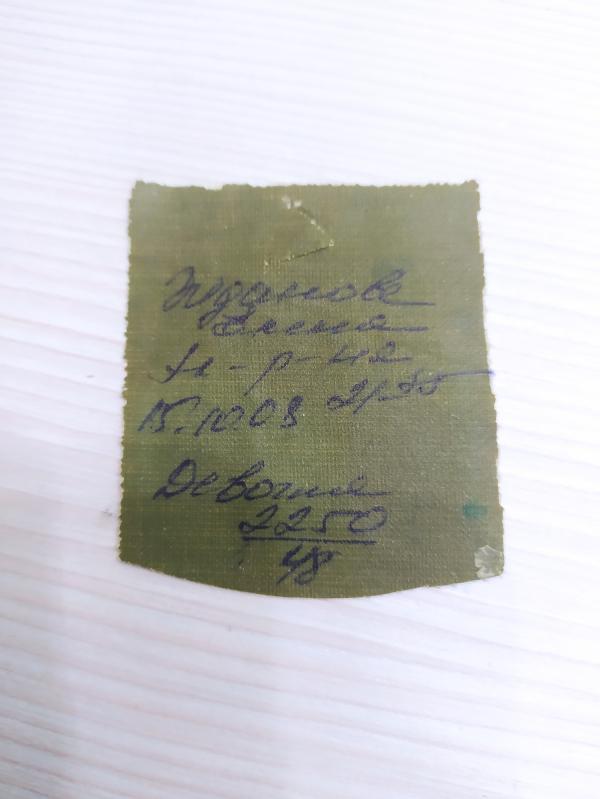 Жданова
Елена
15.10.03 21-35
Девочка
2250
48